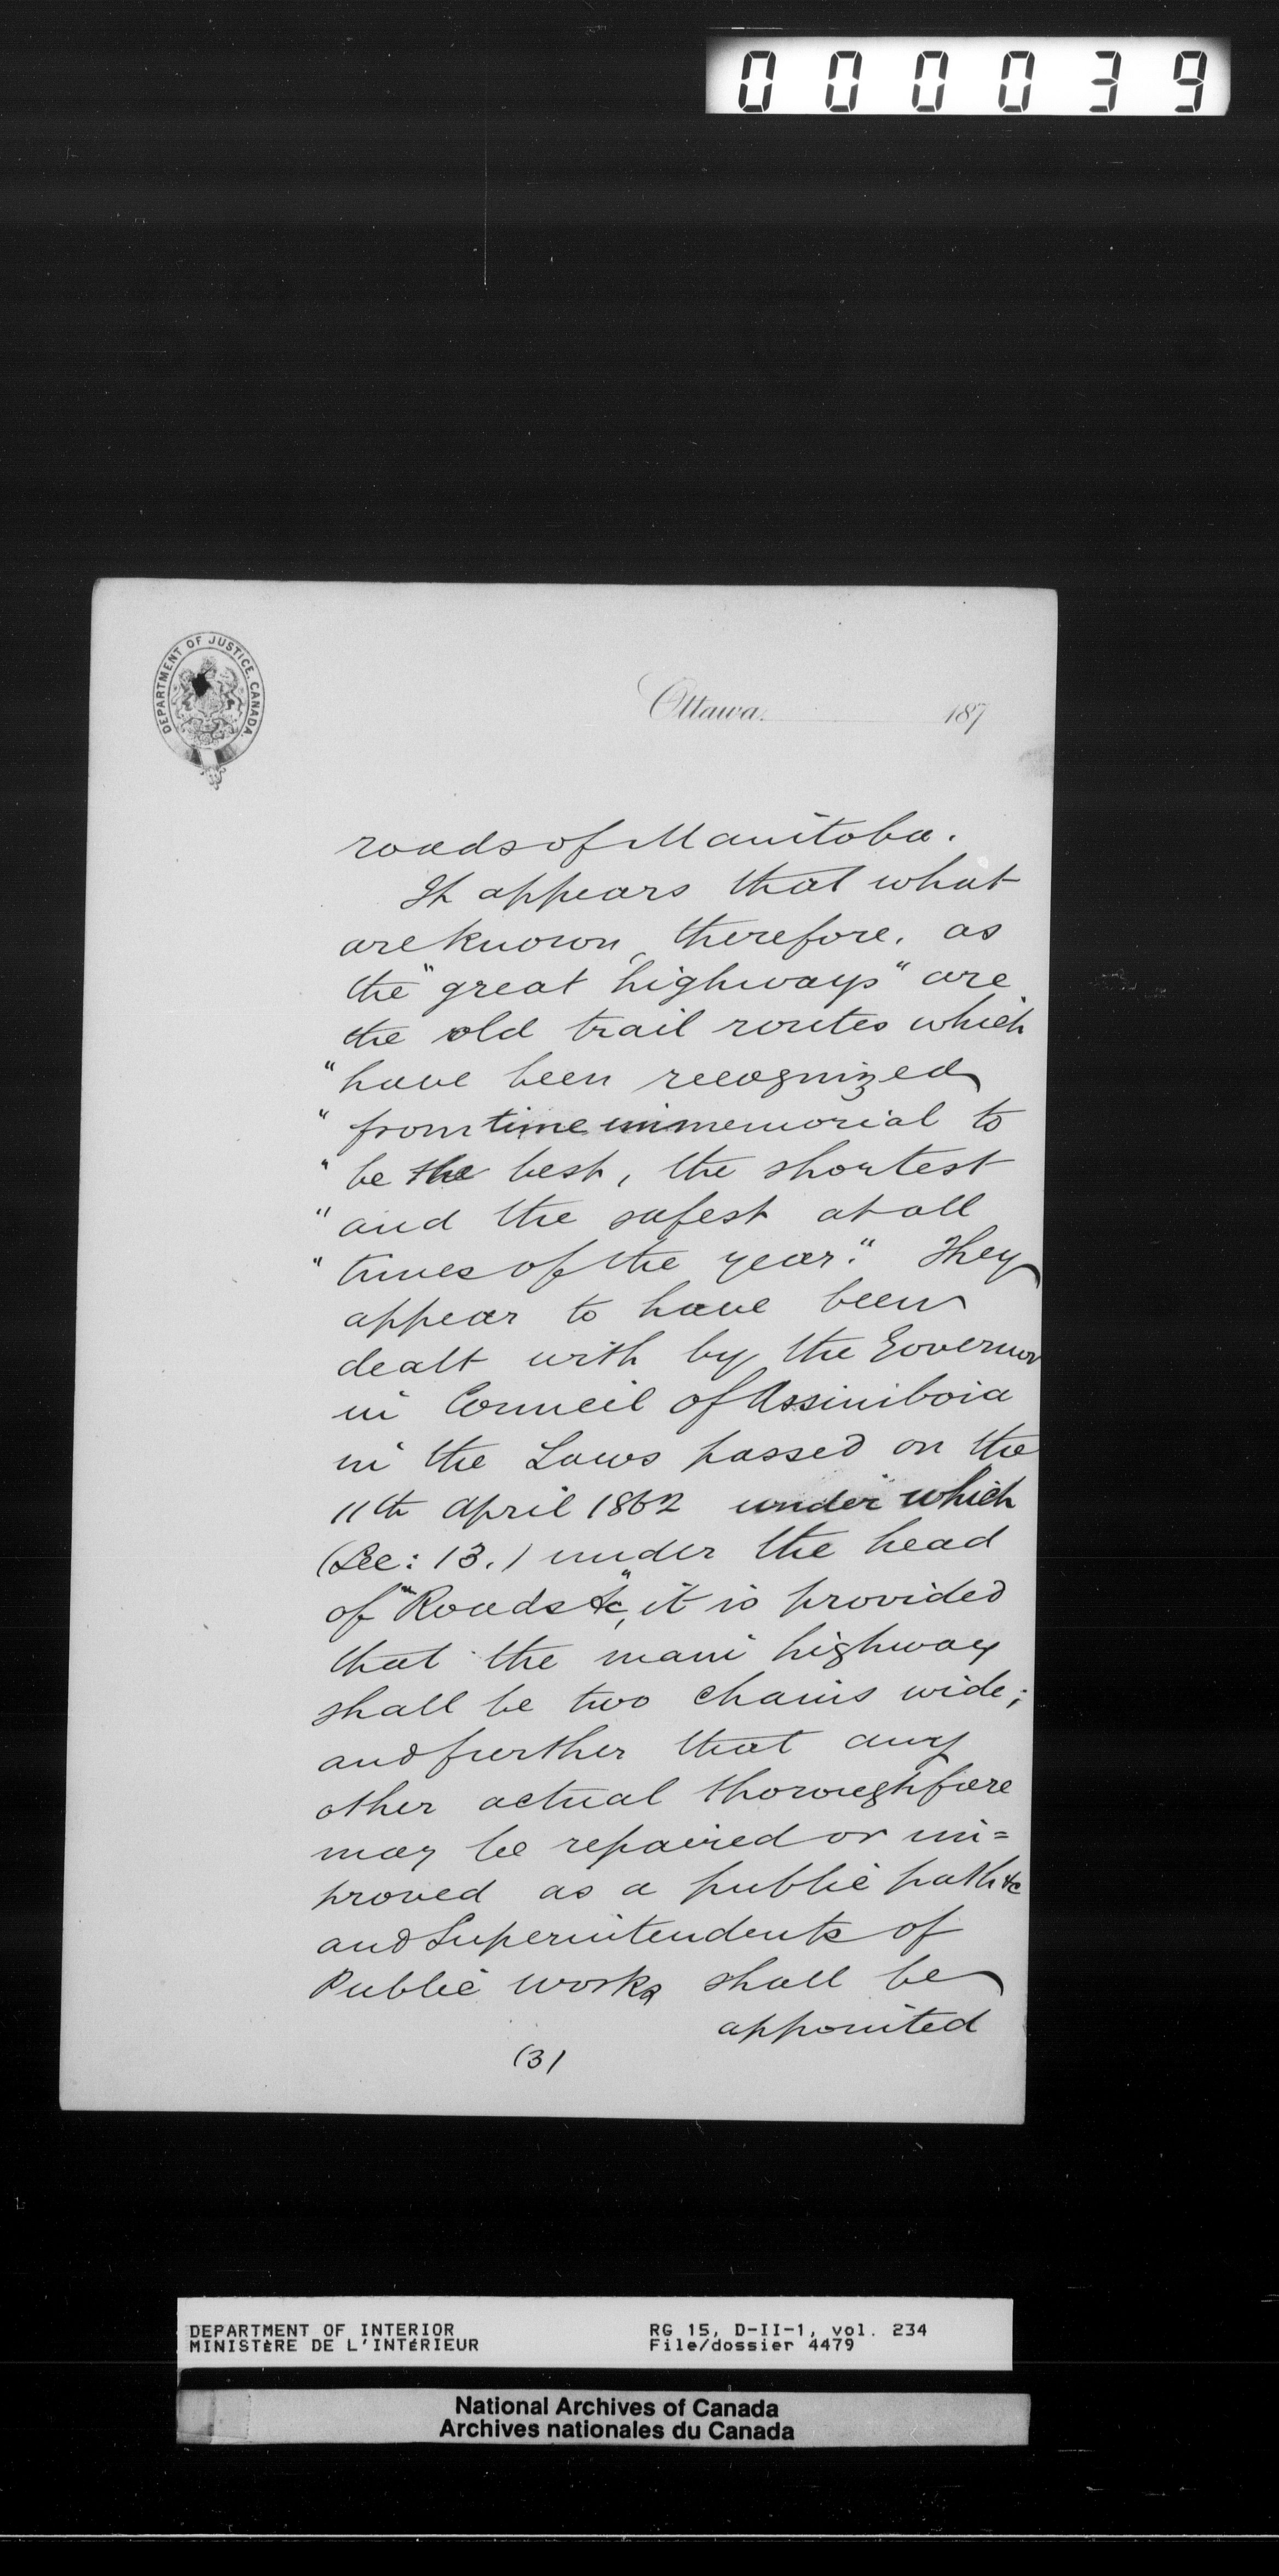 000039
DEPARTMENT OF JUSTICE, CANADA.
Ottawa, 187
roads of Manitoba.
It appears that what
are known, therefore, as
the "great highways" are
the old trail routes which
"have been recognized
"from time immemorial to
"be the best, the shortest
"and the safest at all
"times of the year." They
appear to have been
dealt with by the Governor
in Council of Assiniboia
in the Laws passed on the
11th April 1862 under which
(Sec: 13.) under the head
of "Roads &c", it is provided
that the main highway
shall be two chains wide;
and further that any
other actual thoroughfare
may be repaired or im=
proved as a public path &c
and Superintendents of
Public works shall be
appointed
(3)
DEPARTMENT OF INTERIOR
MINISTÈRE DE L'INTÉRIEUR
RG 15, D-II-1, vol. 234
File/dossier 4479
National Archives of Canada
Archives nationales du Canada